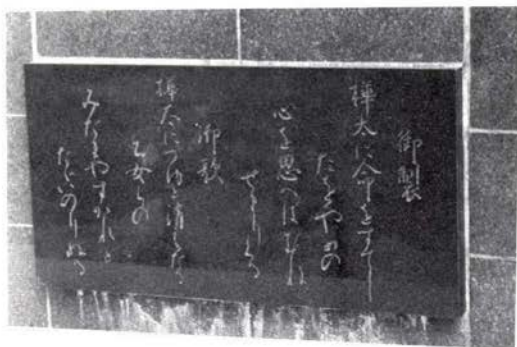 御製
樺太に命をすてし
たをやめの
心を思へばむね
せまりくる
御歌
樺太につゆと消えたる
乙女らの
みたまやすかれと
ただいのりぬる